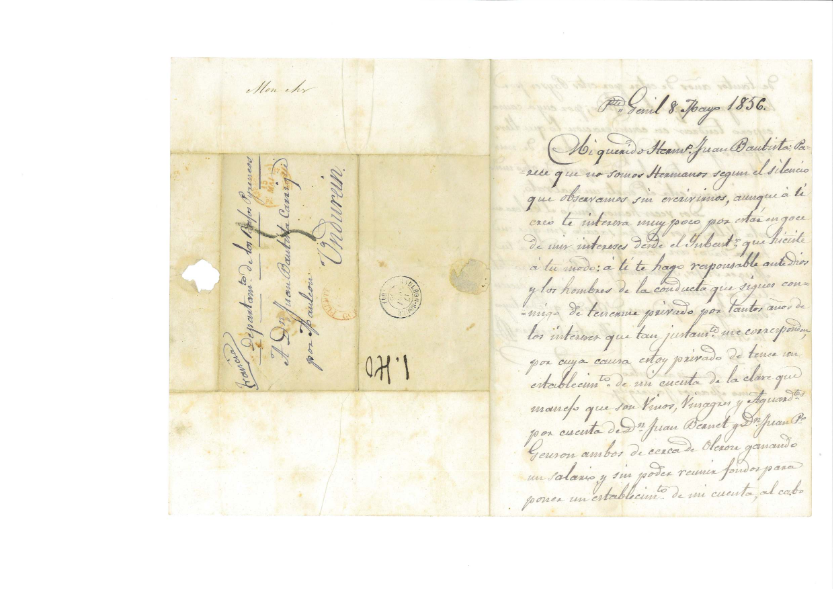 Mon cher
Francia
Departam.to de los Bajos Pyreneos
A Dn. Juan Bautista Carrique
por Mauleon
Undurein
Pte. Genil 8 Mayo 1856.
Mi querido Herm.o Juan Bautista: Pa-
rece que no somos Hermanos segun el silencio
que observamos sin escrivirnos, aunque á ti
creo te interesa muy poco por estar en goce
de mis intereses desde el que hiciste
á tu modo: á ti te hago responsable ante dios
y los hombres de la conducta que sigues con-
migo de tenerme privado por tantos años de
los intereses que tan justam.te me corresponden,
por cuya causa estoy privado de tener un
establecim.to de mi cuenta de la clase que
manejo que son Vinos, Vinagres y Aguard.tes
por cuenta de dn. Juan Bernet y dn. Juan P.
Geuron ambos de cerca de Oleron ganando
un salario y sin poder reunir fondos para
poner un establecim.to de mi cuenta, al cabo